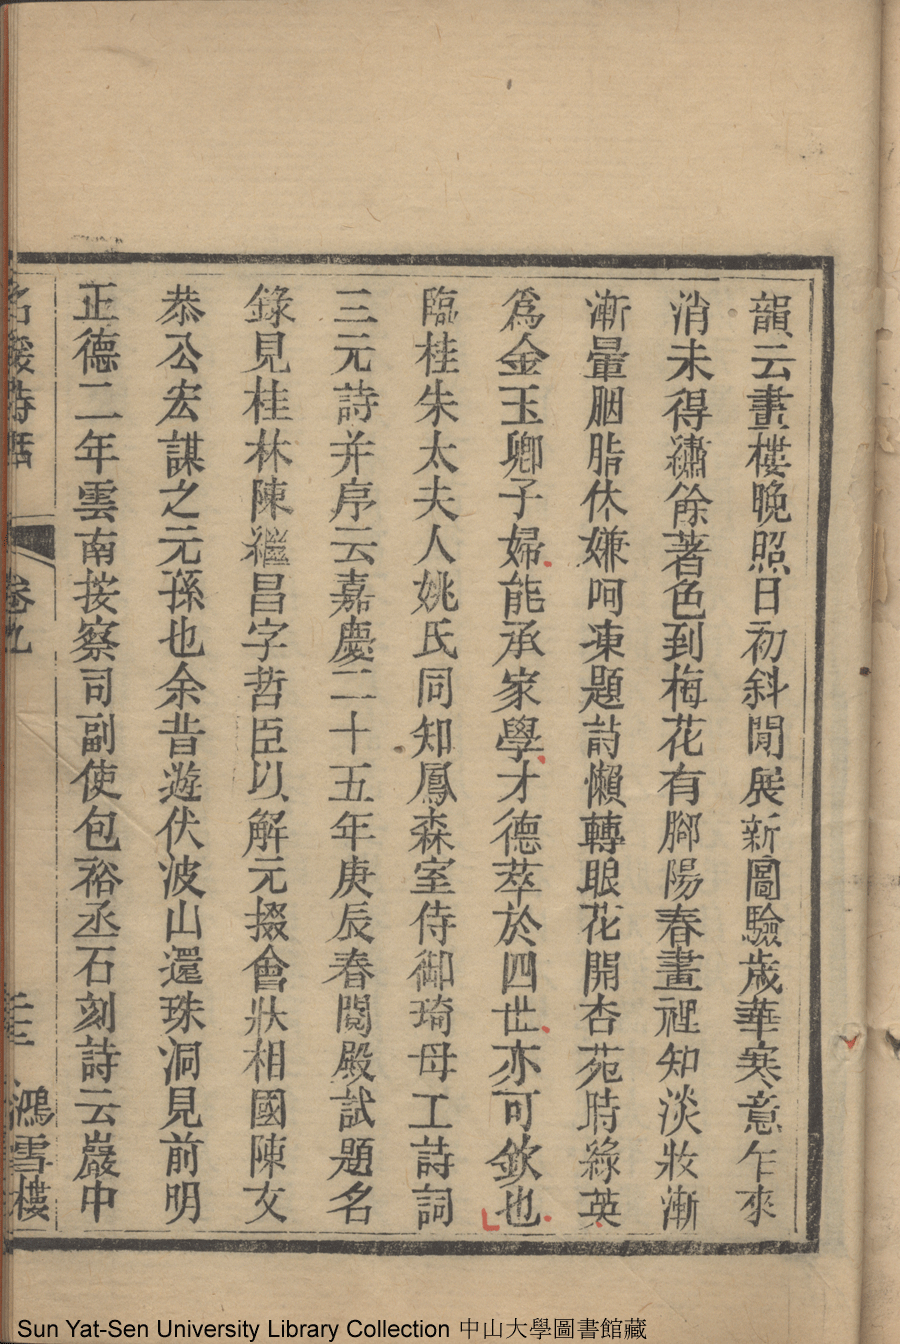 韻云畫樓晚照日初斜閒展新圖驗歲華寒意乍來
消未得繡餘著色到梅花有脚陽春畫裡知淡妝漸
漸暈胭脂休嫌呵凍題詩懶轉眼花開杏苑時綠英
為金玉卿子婦能承家學才德萃於四世亦可欽也
臨桂朱太夫人姚氏同知鳳森室侍御琦母工詩詞
三元詩并序云嘉慶二十五年庚辰春閱殿試題名
錄見桂林陳繼昌字哲臣以解元掇會狀相國陳文
恭公宏謀之元孫也余昔遊伏波山還珠洞見前明
正德二年雲南按察司副使包裕丞石刻詩云巖中
名媛詩話
卷九
鴻雪樓
Sun Yat-Sen University Library Collection 中山大學圖書館藏